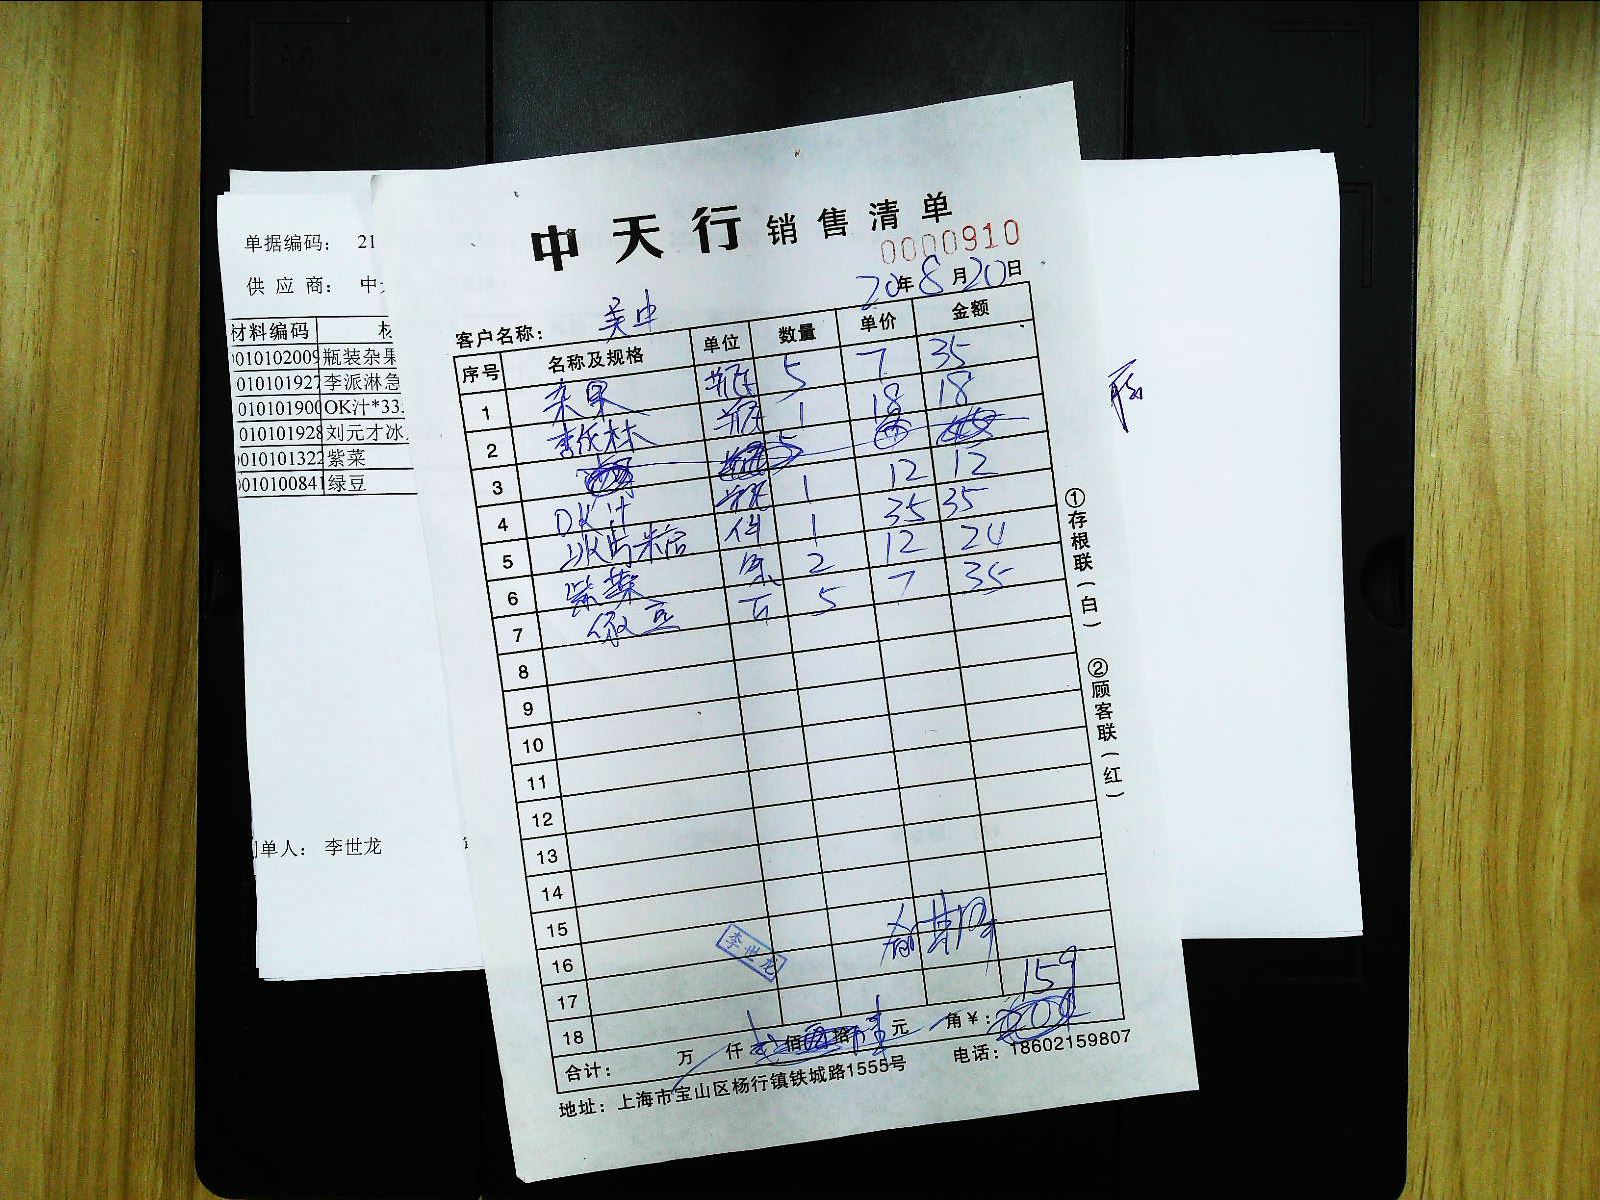 中天行 销售清单
0000910
20年8月20日
客户名称： 吴中
序号 名称及规格 单位 数量 单价 金额
1 杂果 瓶 5 7 35
2 李派林 瓶 1 18 18
3 5
4 OK汁 瓶 1 12 12
5 冰片糖 件 1 35 35
6 紫菜 2 12 24
7 绿豆 斤 5 7 35
8
9
10
11
12
13
14
15
16
17
18
李世龙
159
合计： 万 仟 佰 拾 元 角 ¥：
地址：上海市宝山区杨行镇铁城路1555号 电话：18602159807
①存根联(白) ②顾客联(红)
单据编码： 21
供 应 商： 中
材料编码
010102009 瓶装杂果
010101927 李派淋急
01010190 OK汁*33
010101928 刘元才冰
010101322 紫菜
010100841 绿豆
单人： 李世龙